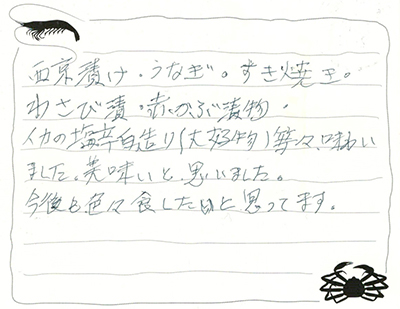 西京漬け・うなぎ。すき焼き。
わさび漬・赤かぶ漬物・
イカの塩辛白造り(大好物)等々、味わい
ました。美味いと、思いました。
今後も色々食したいと思ってます。